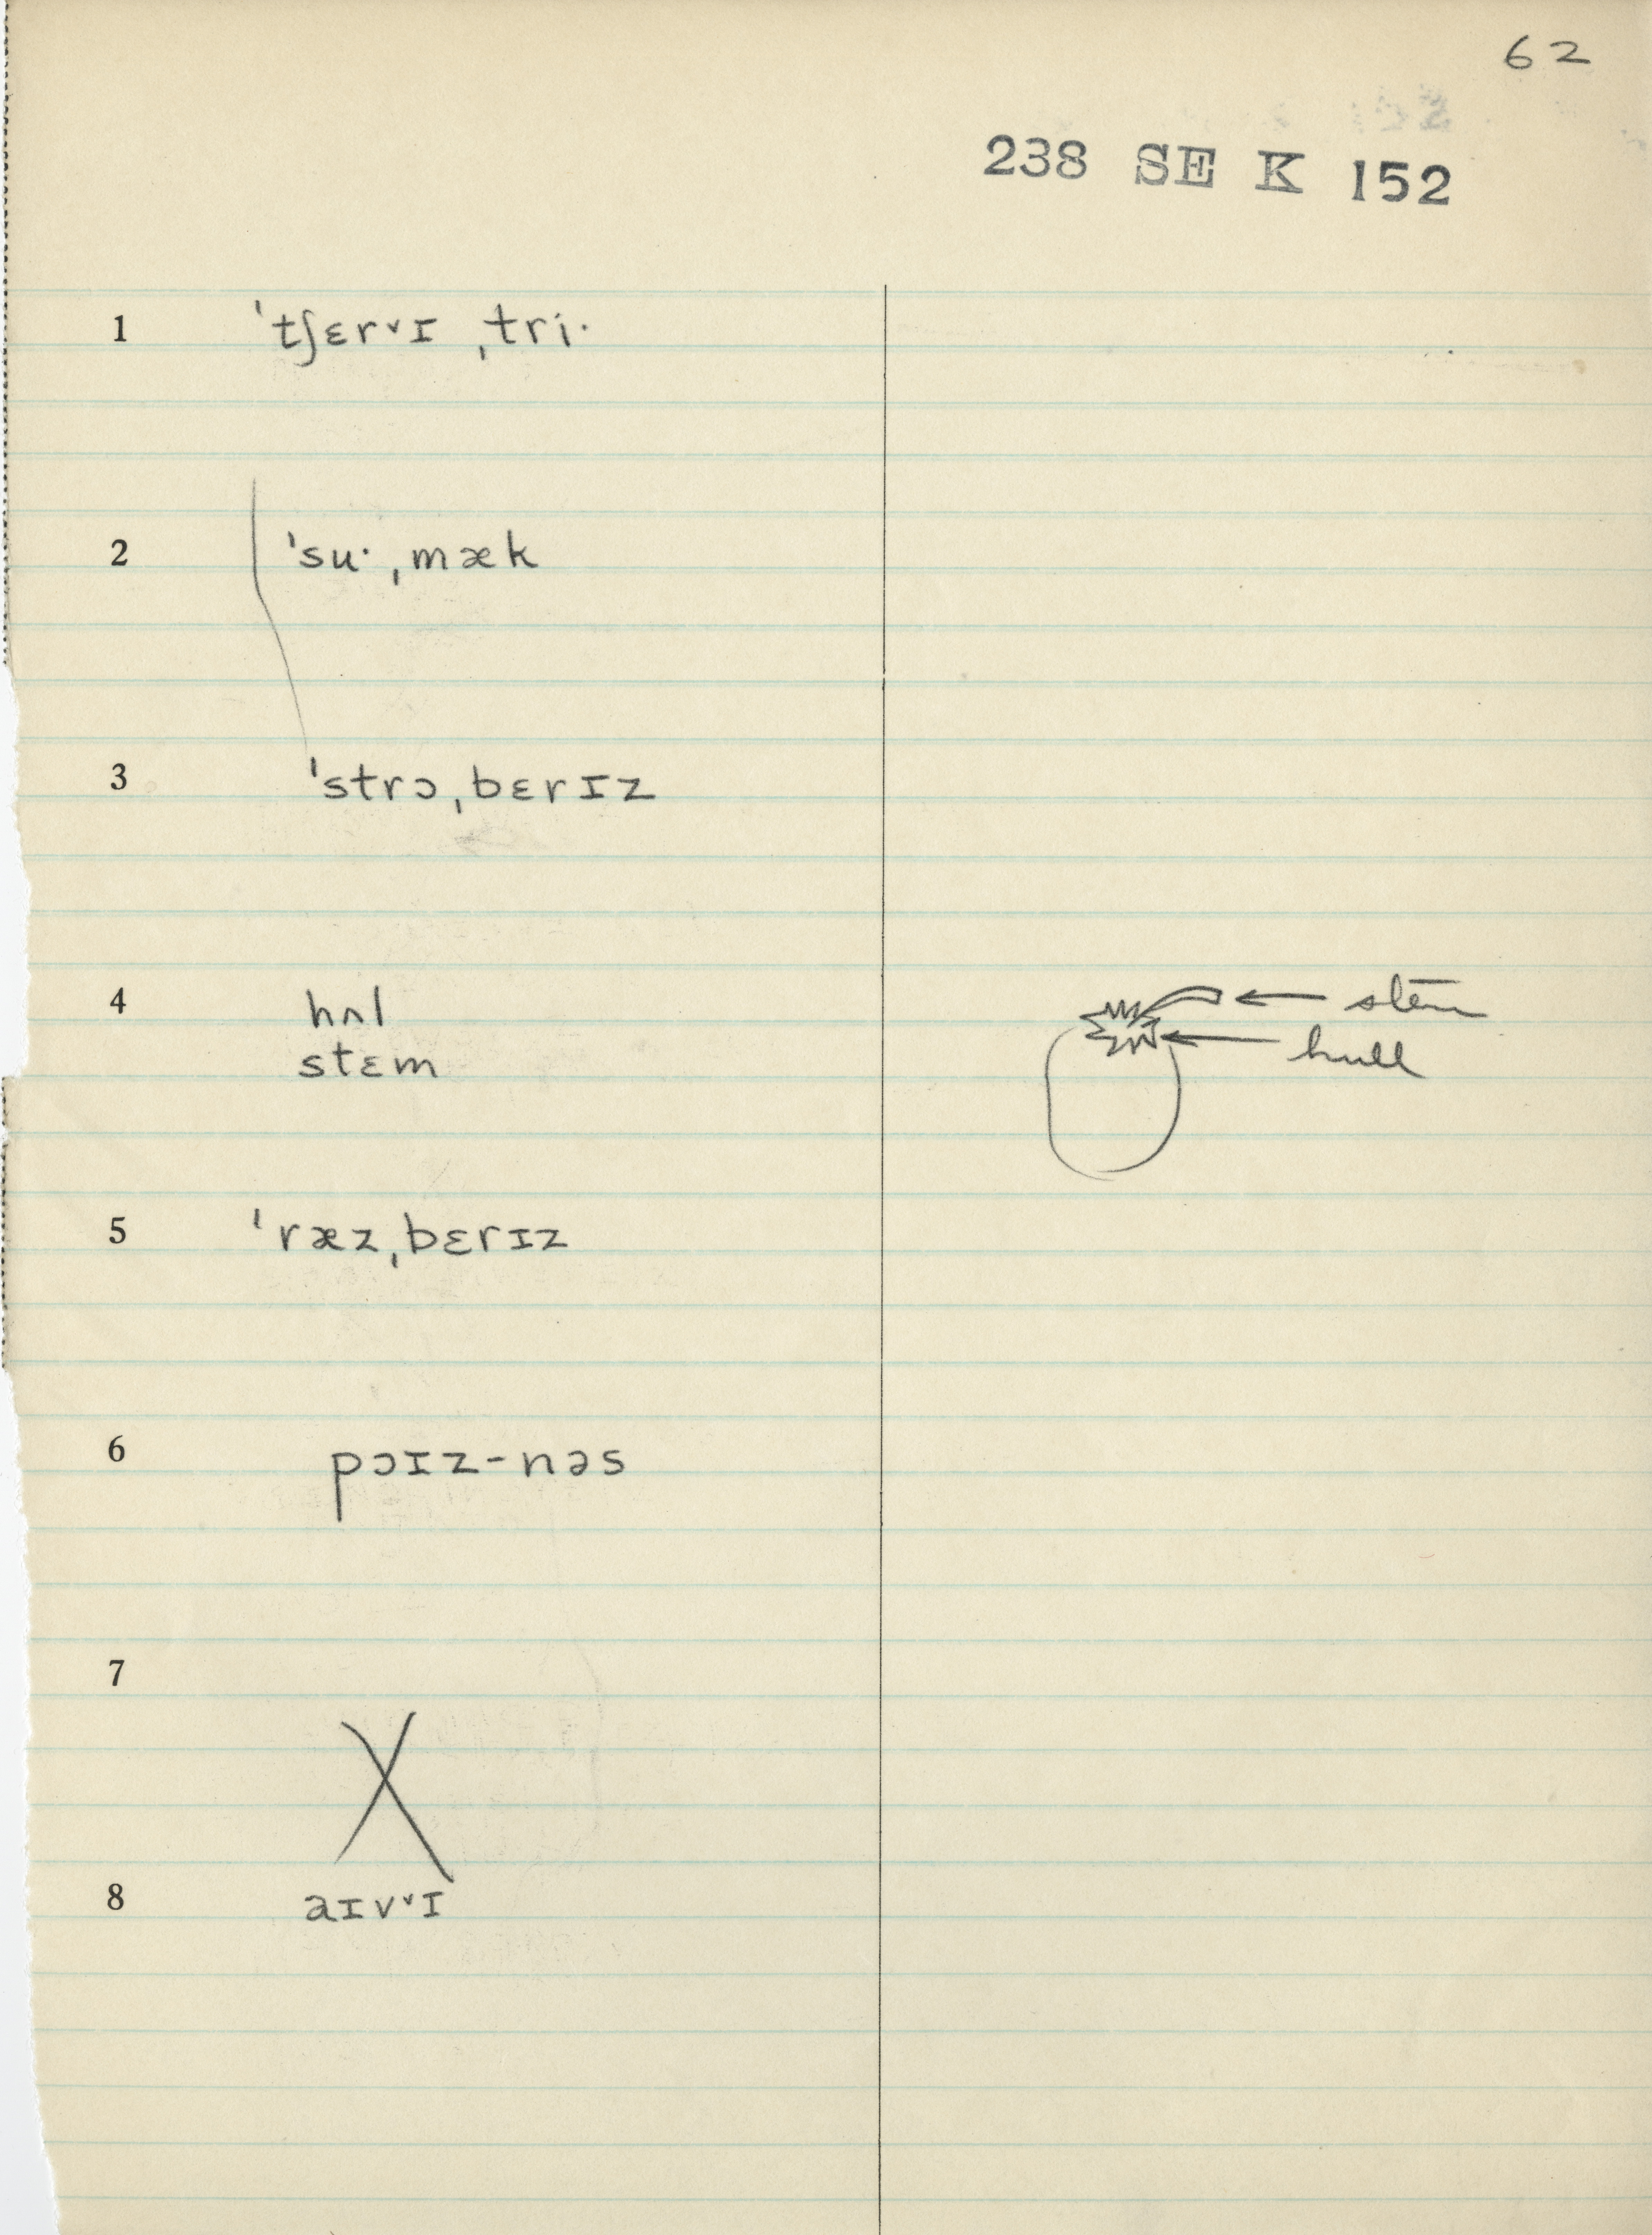 62
238 SE K 152
1 ˈtʃɛr˅ɪ ˌtri·
2 ˈsu· ˌmæk
3 ˈstrɔˌbɛrɪz
4 hʌl
stɛm
stem
hull
5 ˈræzˌbɛrɪz
6 pɔɪz-nəs
7
X
8 aɪv˅ɪ